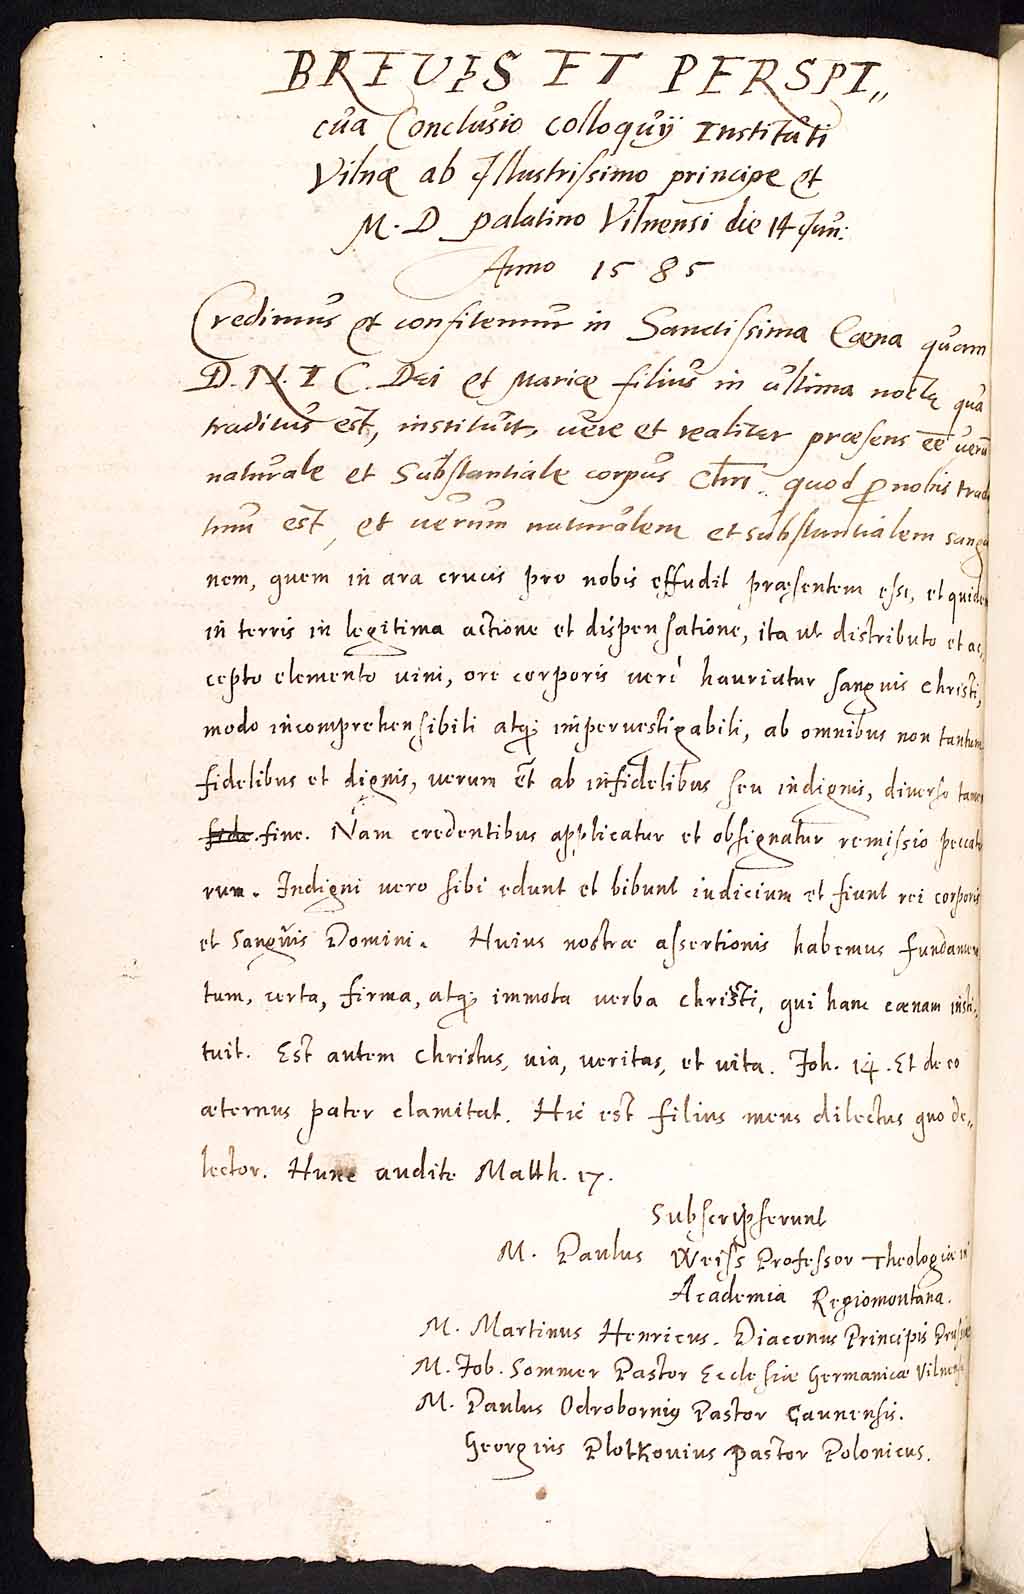 BREVIS ET PERSPI„
cua Conclusio colloquÿ Instituti
Vilnæ ab Illustrissimo principe et
M. D palatino Vilnensi die 14 Jun:
Anno 1585
Credimus et confitemur in Sanctissima Cæna quam
D. N. I C. Dei et Mariæ filius in ultima nocte qua
traditus est, instituit, vere et realiter præsens eē verū
naturale et Substantiale corpus Chri. quod ꝓ nobis tradi
tum est, et verum naturalem et substantialem sangui
nem, quem in ara crucis pro nobis effudit præsentem esse, et quidem
in terris in legitima actione et dispensatione, ita ut distributo et ac„
cepto elemento vini, ore corporis veri hauriatur sanguis Christi,
modo incomprehensibili atq; impervestigabili, ab omnibus non tantum
fidelibus et dignis, verum et̄ ab infidelibus seu indignis, diverso tamen
fide. fine. Nam credentibus applicatur et obsignatur remissio peccato
rum. Indigni vero sibi edunt et bibunt iudicium et fiunt rei corporis
et Sanguis Domini. Huius nostræ assertionis habemus fundamen
tum, certa, firma, atq; immota verba Christi, qui hanc cænam insti„
tuit. Est autem Christus, via, veritas, et vita. Joh. 14. Et de eo
æternus pater clamitat. Hic est filius meus dilectus quo de„
lector. Hunc audite Matth. 17.
Subscripserunt
M. Paulus Weiss Professor Theologiæ in
Academia Regiomontana.
M. Martinus Henricus. Diaconus Principis Prussiæ
M. Job. Sommer Pastor Ecclesiæ Germanicæ Vilnensis
M. Paulus Odrobornig Pastor Caunensis.
Georgius Plotkovius Pastor Polonicus.